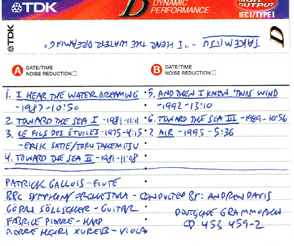 TDK
B
DYNAMIC PERFORMANCE
HIGH OUTPUT
IECI/TYPE I
TDK
TAKEMITSU - "I HEAR THE WATER DREAMING"
A DATE/TIME
NOISE REDUCTION
B DATE/TIME
NOISE REDUCTION
1. I HEAR THE WATER DREAMING
-1987-10:50
2. TOWARD THE SEA I -1981-11:11
3. LE FILS DES ÉTOILES -1975-4:15
- ERIK SATIE/TORU TAKEMITSU
4. TOWARD THE SEA II -1981-11:48
5. AND THEN I KNEW 'TWAS WIND
-1992-13:10
6. TOWARD THE SEA III -1989-10:56
7. AIR -1995-5:36
PATRICK GALLOIS - FLUTE
BBC SYMPHONY ORCHESTRA - CONDUCTED BY: ANDREW DAVIS
GÖRAN SÖLLSCHER - GUITAR
FABRICE PIERRE - HARP
PIERRE HENRI XUEREB - VIOLA
DEUTSCHE GRAMMOPHON
453 459-2